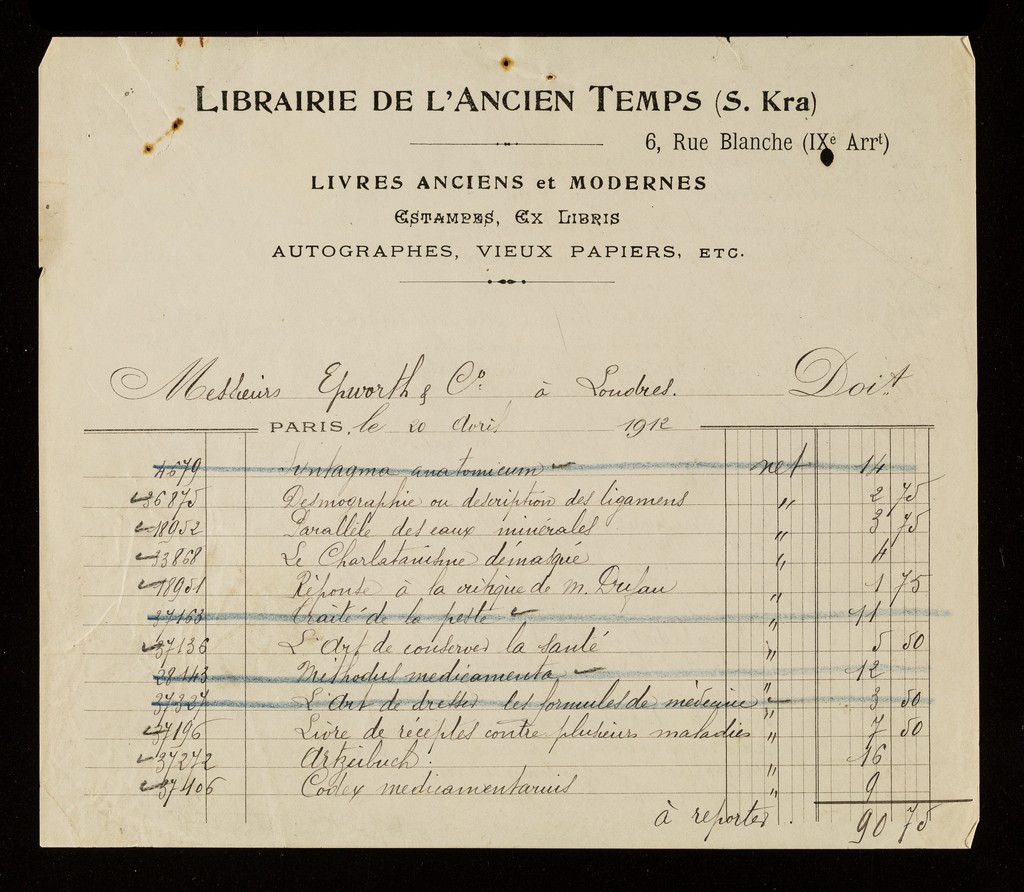 LIBRAIRIE DE L'ANCIEN TEMPS (S. Kra)
6, Rue Blanche (IXe Arrt)
LIVRES ANCIENS et MODERNES
ESTAMPES, EX LIBRIS
AUTOGRAPHES, VIEUX PAPIERS, ETC.
Messieurs Epworth & Co. à Londres. Doit
PARIS, le 20 Avril 1912
4679 Syntagma anatomicum net 14
36875 Desmographie ou description des ligamens " 2 75
18952 Parallèle des eaux minérales " 3 75
33868 Le Charlatanisme démasqué " 4
18951 Réponse à la critique de M. Dufau " 1 75
37163 Traité de la peste " 11
37136 L'Art de conserver la santé " 5 50
28143 Methodus medicamenta " 12
37327 L'Art de dresser les formules de médecine " 3 50
37196 Livre de réceptes contre plusieurs maladies " 7 50
37272 Artzeibuch. " 16
37406 Codex medicamentarius " 9
à reporter. 90 75